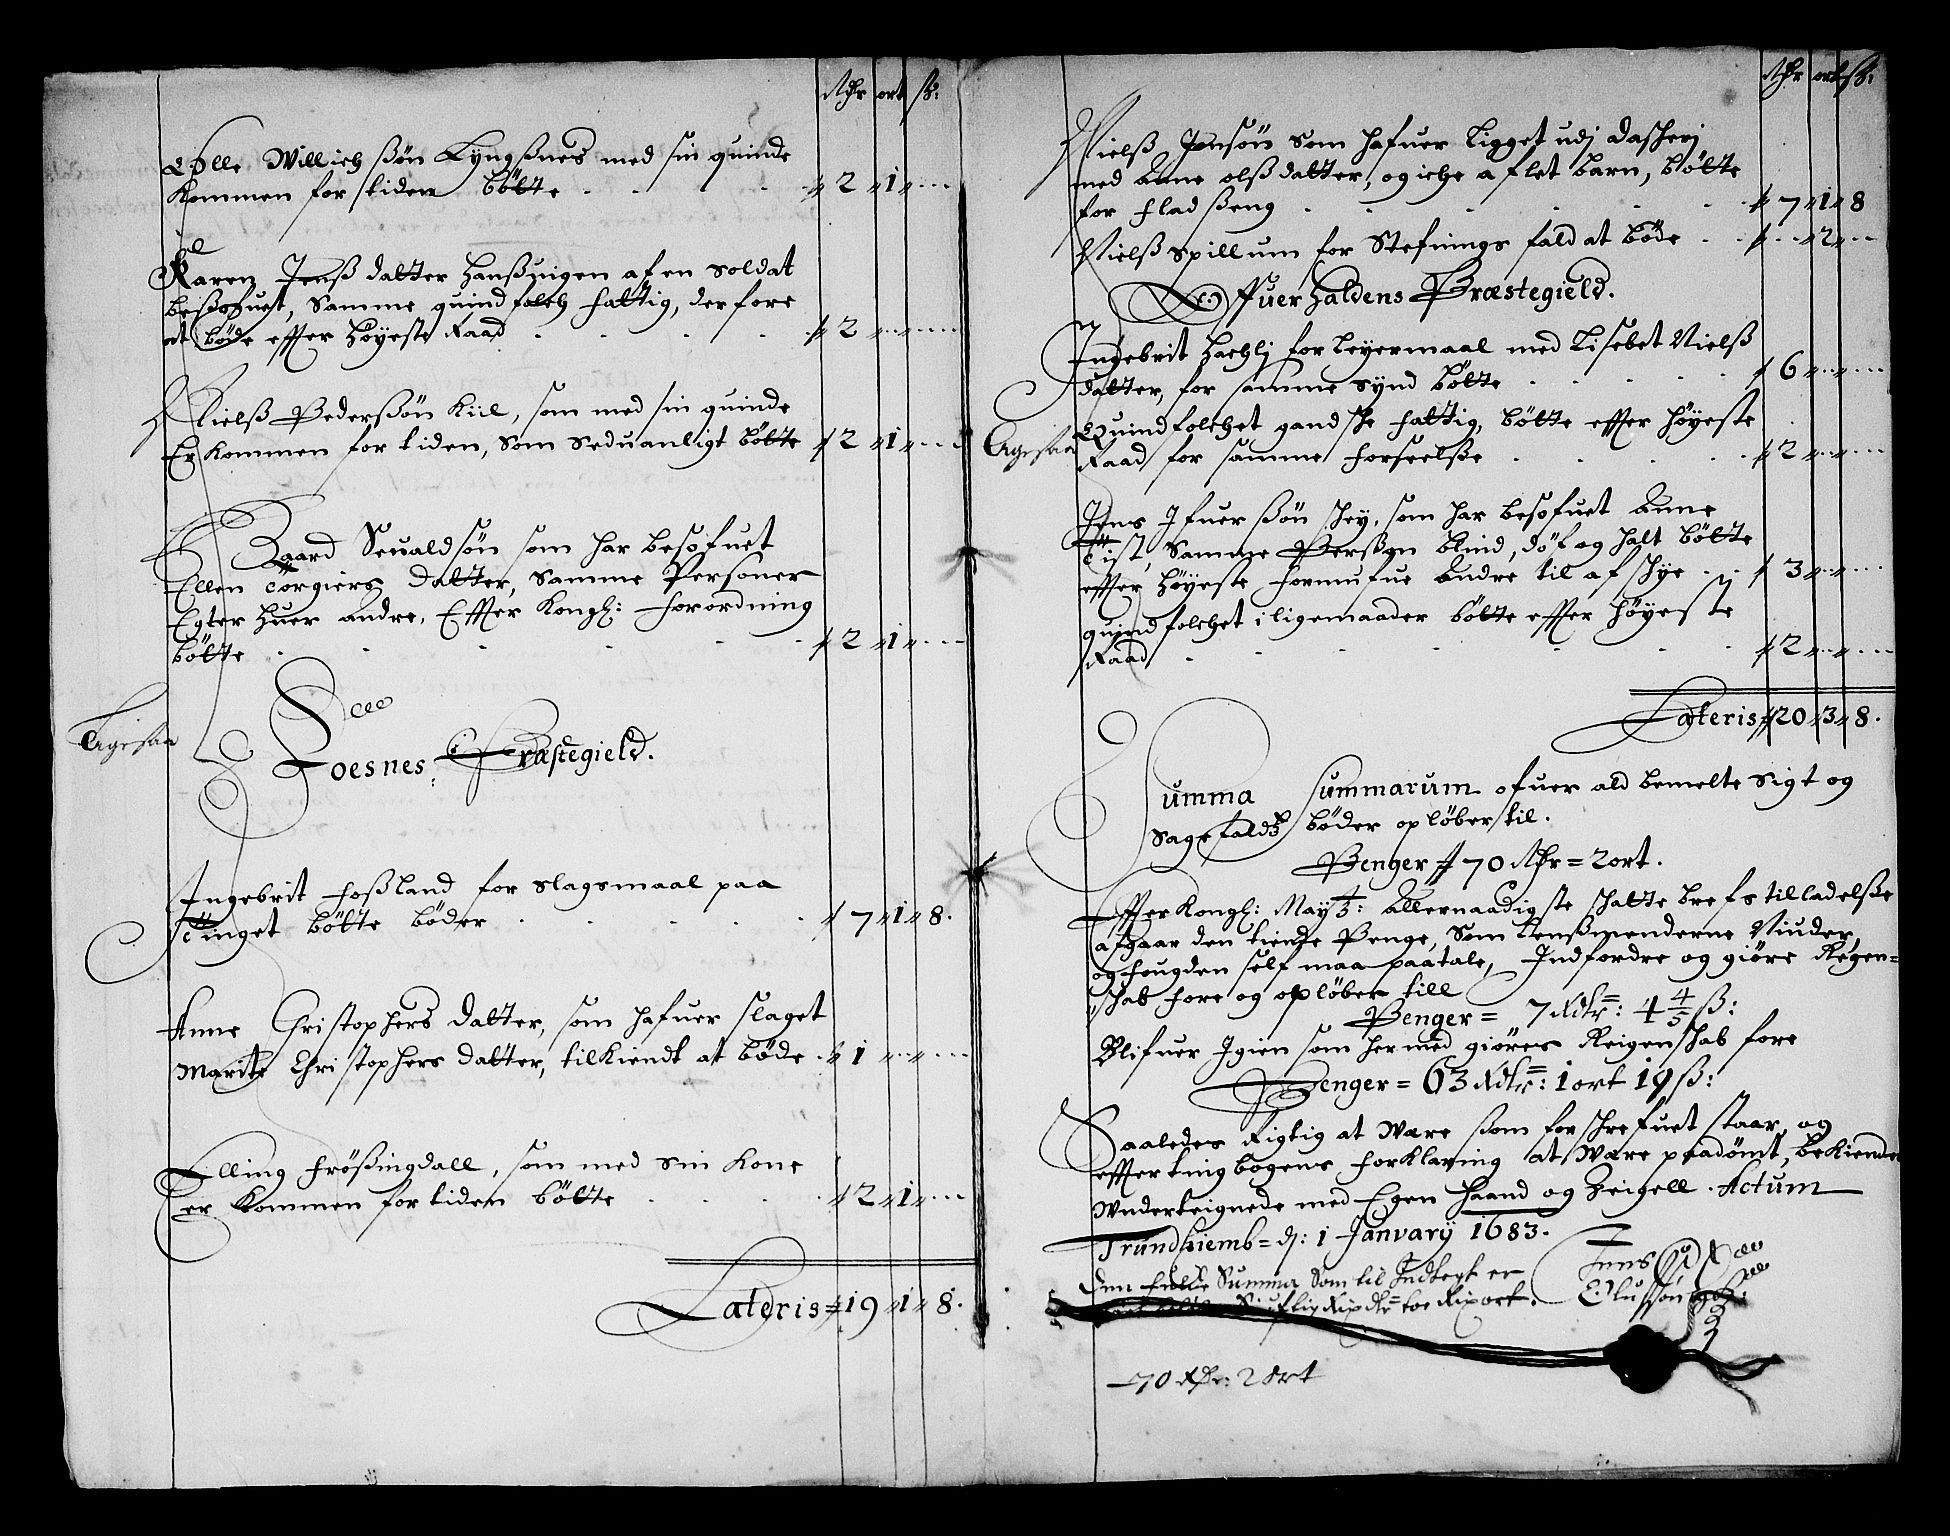 Rdr ort ß:
Olle Willichsßøn Lyngßnes med sin quinde
Kommen for tiden bötte . . . 2 1 ...
Karen Jenß datter Hanßuigen af en soldat
besofuet, Samme quindfolch fattig, derfore
at böde effter höyeste Raad . . . 2 ... ...
Nielß Pederßøn Kiil, som med sin quinde
Er Kommen for tiden, som seduanligt bötte 2 1 ...
Baard Seualdsøn som har besofuet
Ellen Törgiers datter, Samme Personer
Egter huer andre, Effter Kongl: forordning
bötte . . . 2 1 ...
Agesaa
Foesnes Præstegield.
Ingebrit Foßland for slagsmaal paa
tinget bötte böder . . . 7 1 8.
Anne Christophers datter, som hafuer slaget
Marite Christophers datter, tilkiendt at böde . 1 ... ...
Elling Frößingdall, som med sin Kone
er Kommen for tiden bötte . . . 2 1 ...
Lateris 19 1 8.
Rdr ort ß:
Nielß Jensøn som hafuer ligget udj
med Anne olß datter, og iche aflet barn, bötte
for fladßeng . . . 7 1 8
Nielß Spillum for Stefnings fald at böde . . . 2 ...
Offuerhaldens Præstegield.
Ingebrit Hachlj for leyermaal med Lisebet Nielß
datter, for samme synd bötte . . . 6 ... ...
Agesaa
Quindfolchet gandske fattig, bötte effter höyeste
Raad for samme forseelße . . . 2 ... ...
Jens Ifuersßøn Schey, som har besofuet Anne
tist, Samme Perßon blind, döf og halt bötte
effter höyeste formufue andre til afschye . . 3 ... ...
quindfolchet iligemaader bötte effter höyeste
Raad . . . 2 ... ...
Lateris 20 3 8.
Summa Summarum ofuer ald bemelte Sigt og
Sagefaldß böder opløber til.
Penger 70 Rdr = 2 ort.
Effter Kongl: Maytz: Allernaadigste schatte brefs tilladelße
afgaar den tiende Penge, Som Lenßmenderne Niuder,
og fougden self maa paatale, Indfordre og giöre Regen=
schab fore og opløber till
Penger = 7 Rdr: 4 4/5 ß:
Blifuer Igien som her med giöres Reigenschab fore
Penger = 63 Rdr: 1 ort 19 ß:
Saaledes Rigtig at Wære ßom forschrefuet staar, og
effter tingbogens forklaring at Wære paadömt, bekiender
Wnderteignede med Egen Haand og Zeigell. Actum
Trundhiemb = d: 1 Januarÿ 1683.
Den fulde Summa som til Indtegt er
Rdr toe Riport.
Jens
Olussøn
70 Rdr: 2 ort